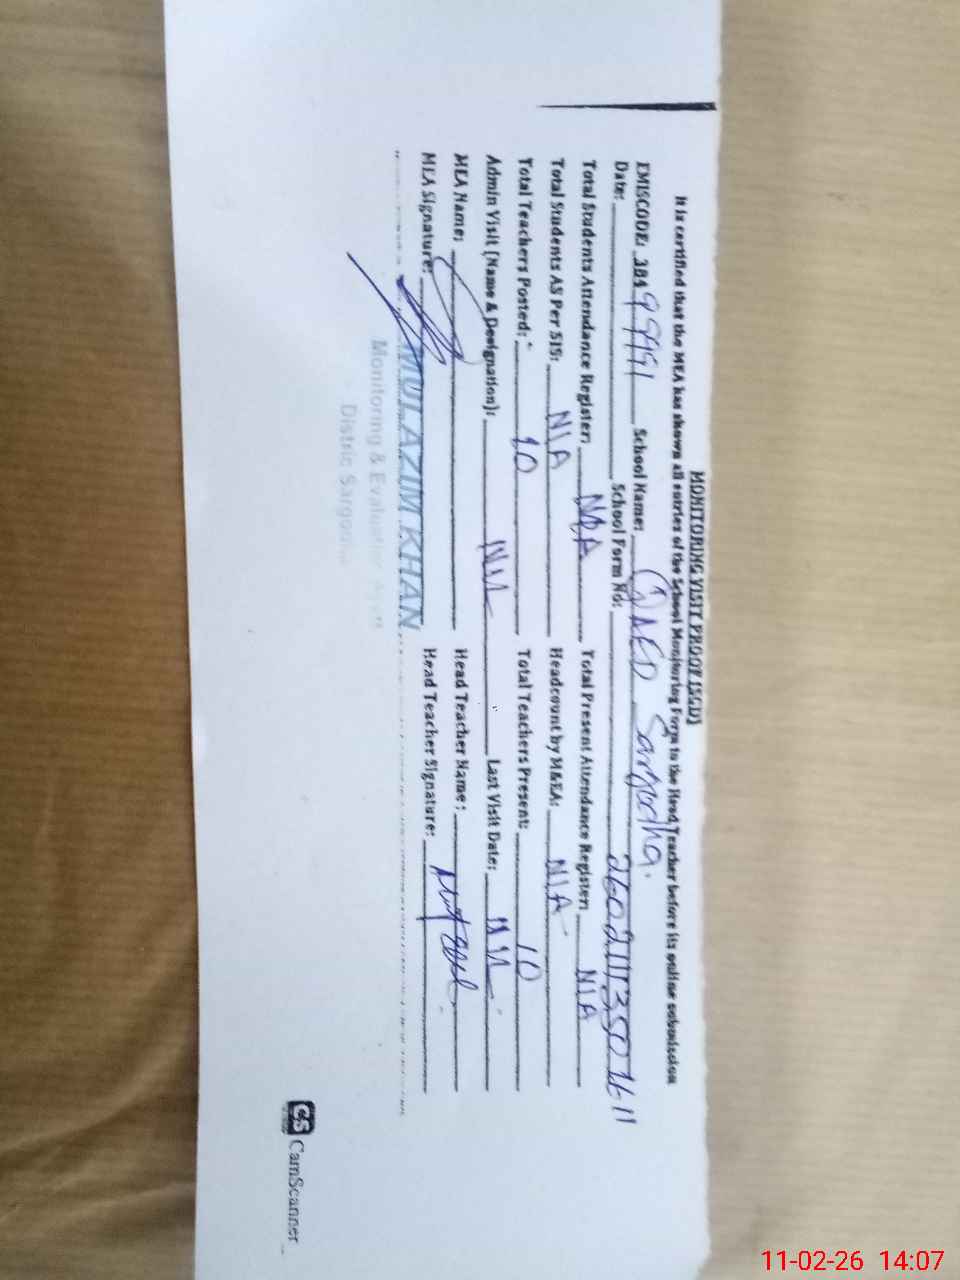 MONITORING VISIT PROOF [SGD]
It is certified that the MEA has shown all entries of the School Monitoring Form to the Head Teacher before its online submission
EMISCODE: 384 99991 School Name: QAED Sargodha.
Date: School Form No:
Total Students Attendance Register: N/A Total Present Attendance Register: N/A
Total Students AS Per SIS: N/A Headcount by M&EA: N/A
Total Teachers Posted: 10 Total Teachers Present: 10
Admin Visit (Name & Designation): Nil Last Visit Date: Nil
MEA Name: Head Teacher Name:
MEA Signature: Head Teacher Signature:
MULAZIM KHAN
Monitoring & Evaluation
Distric Sargodha
CS CamScanner
11-02-26 14:07